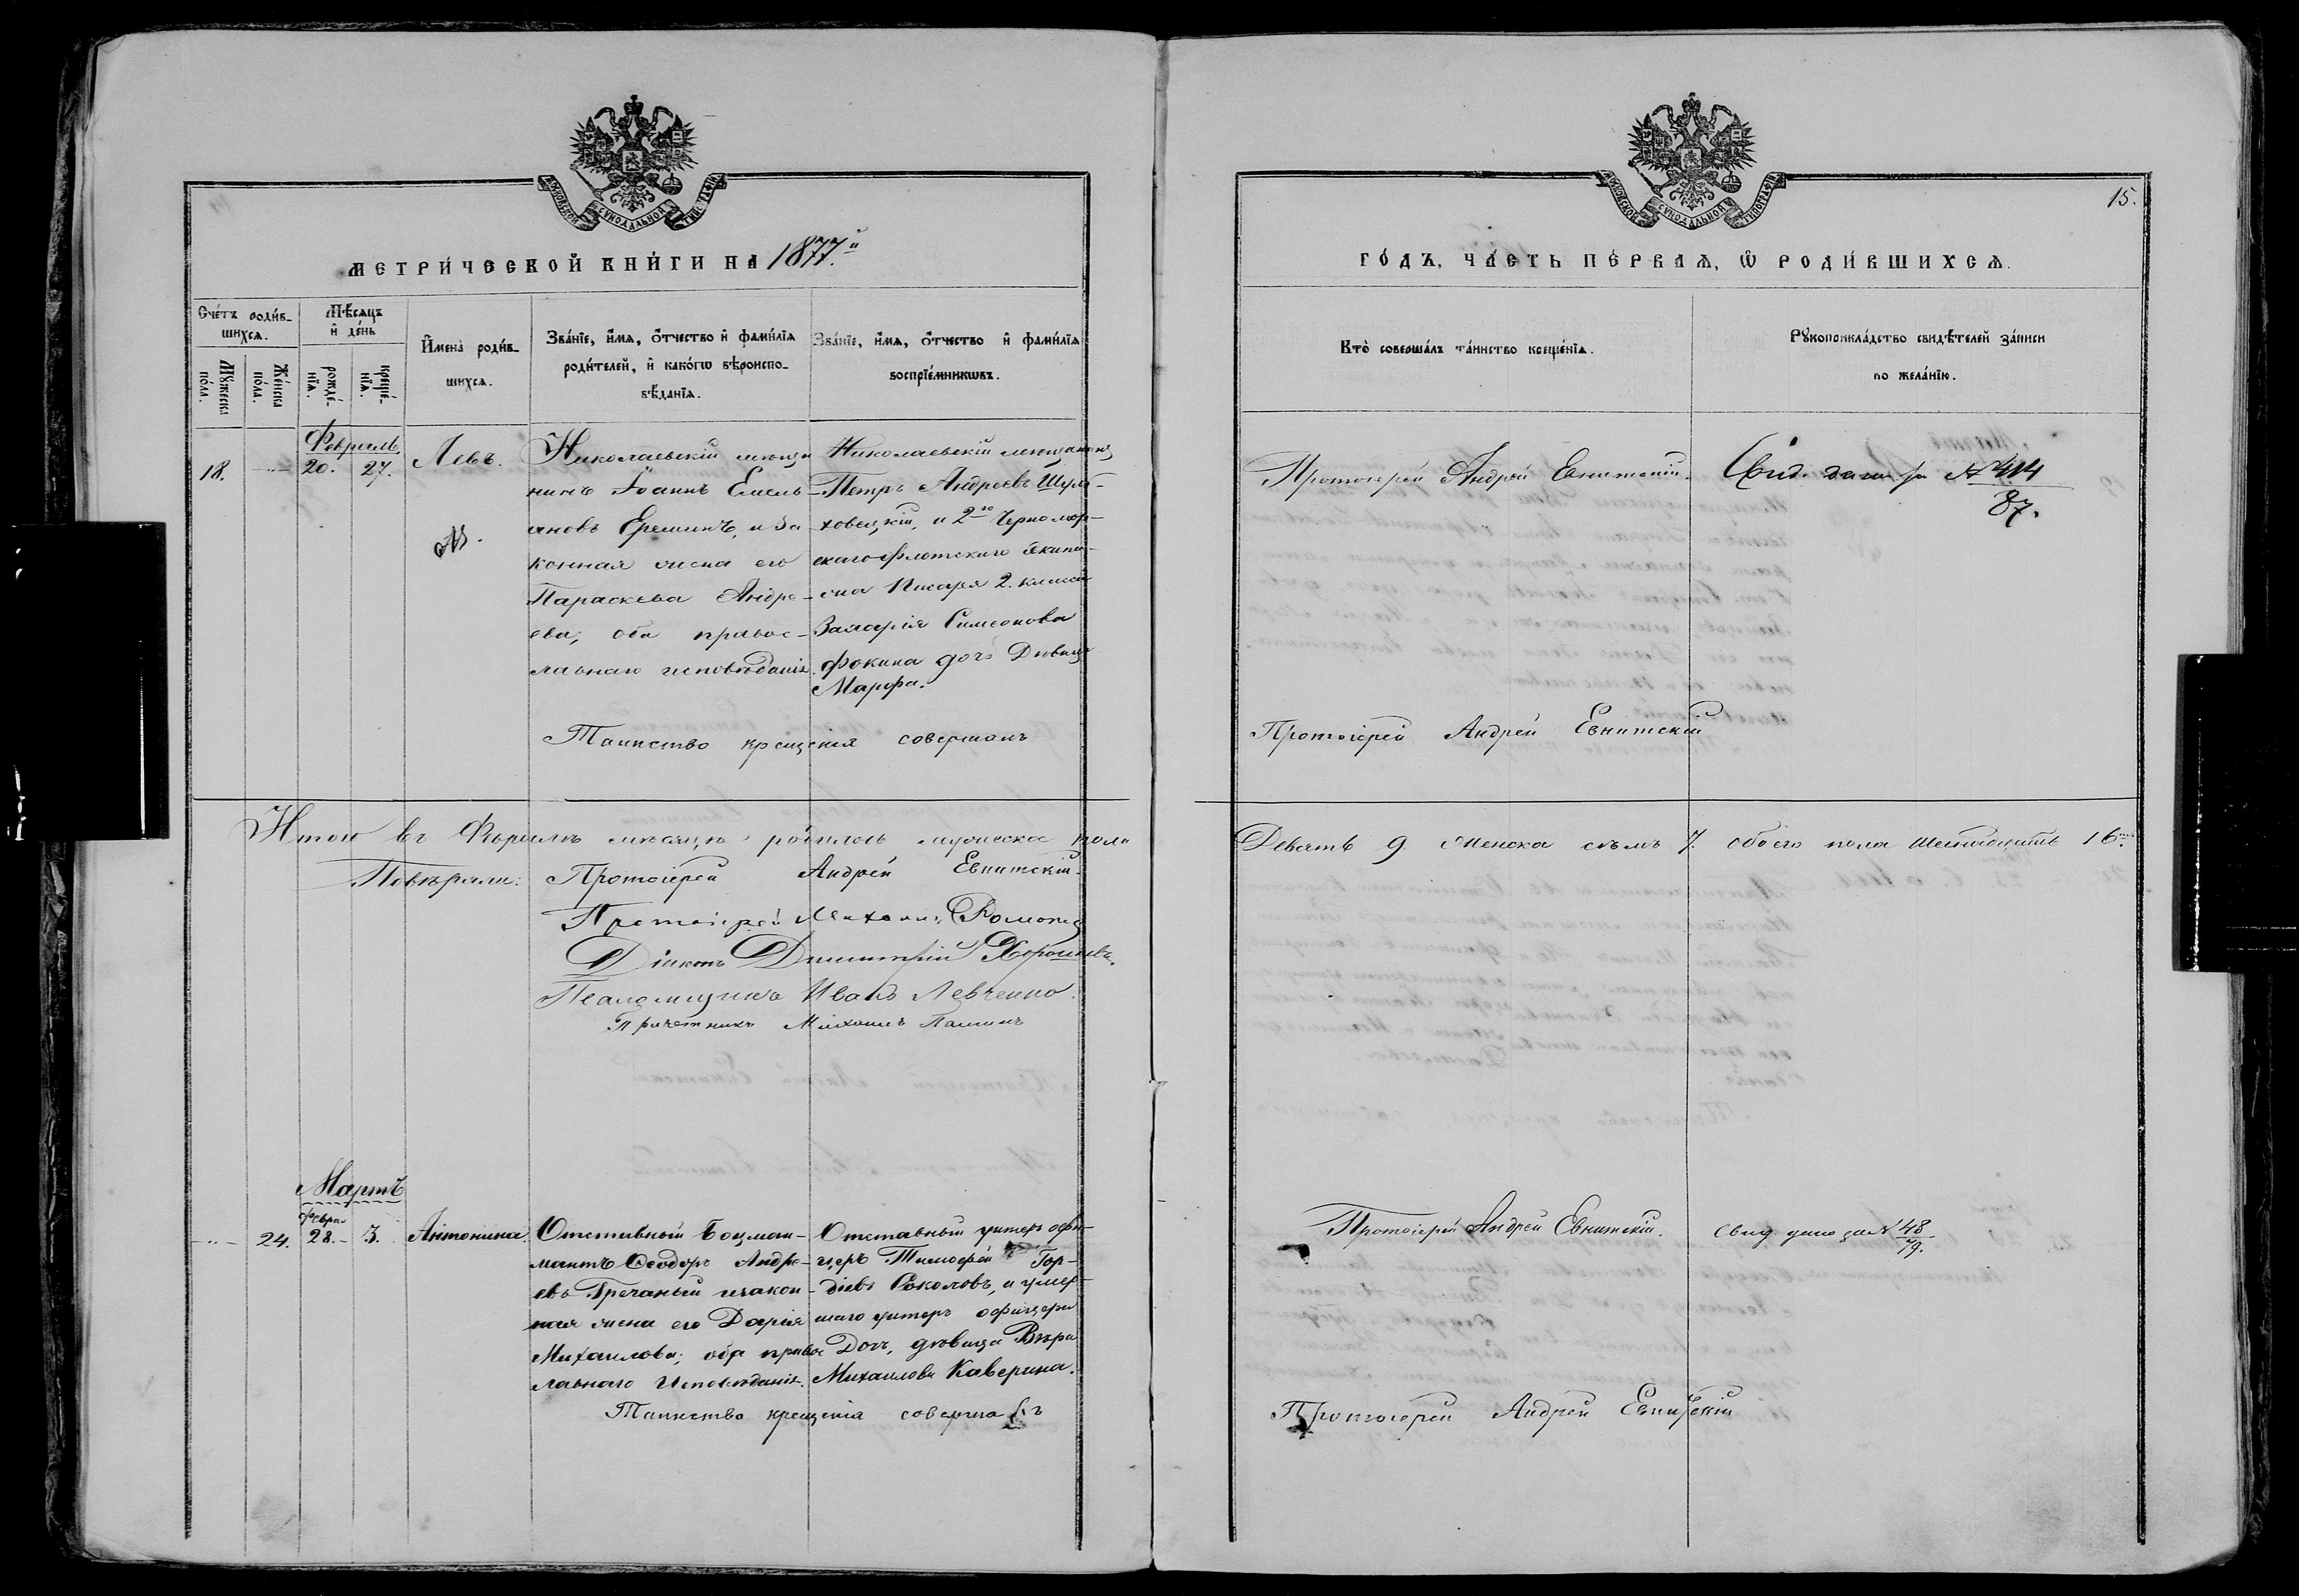 МОСКОВСКОЙ СѴНОДАЛЬНОЙ ТИПОГРАФІИ
МЕТРИ́ЧЕСКОЙ КНИ́ГИ НА 1877.й
Сче́тъ роди́в-
шихся.
Мѣ́сяцъ
и҆ де́нь
Мꙋ́жеска
по́ла.
Же́нска
по́ла.
рожде́-
нїѧ.
креще́-
нїѧ.
И҆мена̀ роди́в-
шихсѧ.
Зва́нїе, и҆́мѧ, ѻ҆́тчество и҆ фами́лїѧ
роди́телей, и҆ како́гѡ вѣроиспо-
вѣ́данїѧ.
Зва́нїе, и҆́мѧ, ѻ҆́тчество и҆ фами́лїѧ
воспрїе́мникѡвъ.
Февраль
18.
20. 27.
Левъ.
Николаевскій мѣща
нинъ Іоаннъ Емель-
яновъ Ереминъ, и за
конная жена его
Параскева Андре-
ева; оба правос-
лавнаго исповѣданія.
Николаевскій мѣщанинъ
Петръ Андреевъ
ховецкій, и 2го Черномор-
скаго флотскаго Экипа-
жа Писаря 2. класса
Захарія Симеонова
Фокина дочь Дѣвица
Марѳа.
Таинство крещенія совершалъ
Итого въ Февралѣ мѣсяцѣ родилось мужеска пола
Повѣряли:
Протоіерей Андрей Евнитскій.
Протоіерей Михаилъ
Діаконъ Димитрій Хорошевъ.
Псаломщикъ Иванъ Левченко.
Причетникъ Михаилъ
Мартъ
Февра.
24. 28. 3.
Антонина.
Отставный Боцман-
матъ Ѳеодоръ Андре-
евъ Гречаный и закон-
ная жена его Дарія
Михаилова; оба правос
лавнаго Исповѣданія.
Отставный унтеръ офи-
церъ Тимофей Гор-
діевъ Соколовъ, и умер-
шаго унтеръ офицера
Дочь, дѣвица Вѣра
Михаилова Каверина.
Таинство крещенія совершалъ
МОСКОВСКОЙ СѴНОДАЛЬНОЙ ТИПОГРАФІИ
15.
ГО́ДЪ, ЧА́СТЬ ПЕ́РВАѦ, Ѡ҆ РОДИ́ВШИХСѦ.
Кто̀ соверша́лъ та́инство креще́нїѧ.
Рꙋкоприкла́дство свидѣ́телей за́писи
по жела́нїю.
Протоіерей Андрей Евнитскій.
Свид. дано за № 414
87.
Протоіерей Андрей Евнитскій
Девять 9. Женска семь 7. обоего пола шестнадцать 16.
Протоіерей Андрей Евнитскій.
Свид. дано за № 48
79.
Протоіерей Андрей Евнитскій